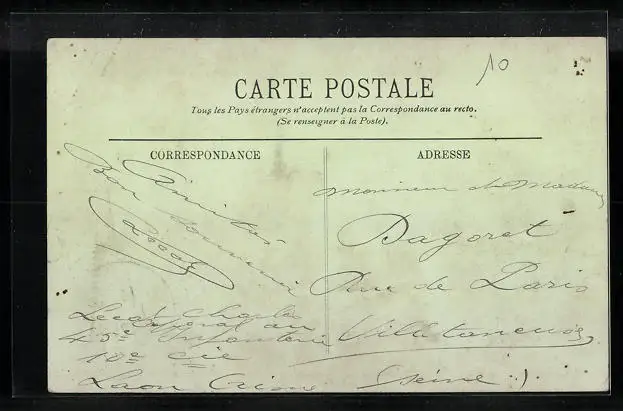 10
CARTE POSTALE
Tous les Pays étrangers n'acceptent pas la Correspondance au recto.
(Se renseigner à la Poste).
CORRESPONDANCE
Amitiés
Bon souvenir
Lecat
Lecat Charles
Caporal au
45e Infanterie
10e Cie
Laon Aisne
ADRESSE
Monsieur et Madame
Dagoret
Rue de Paris
Villetaneuse
(Seine)